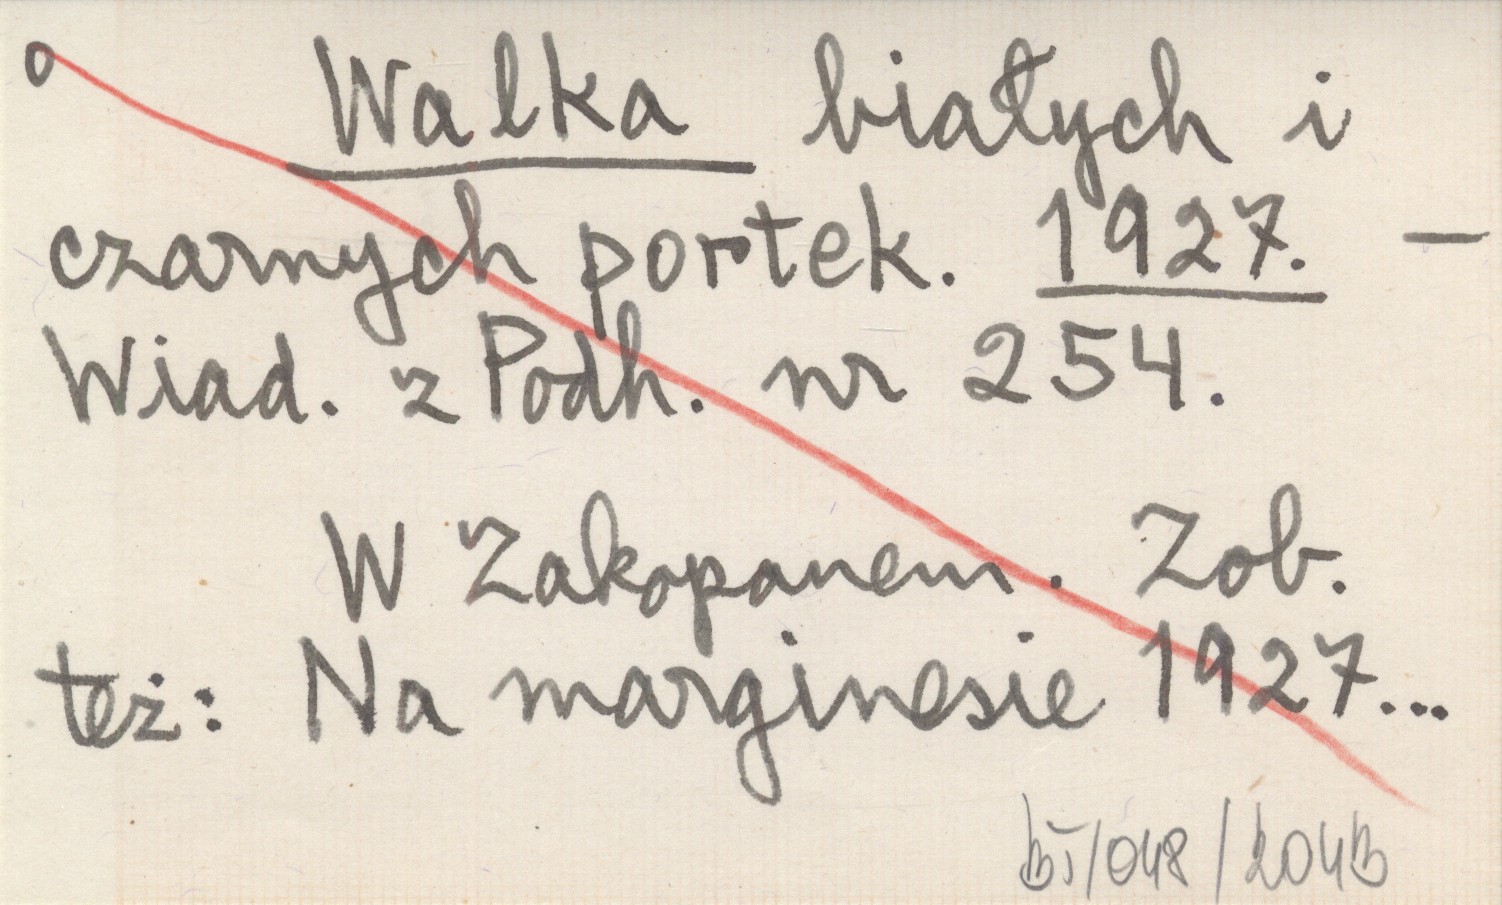 o Walka białych i
czarnych portek. 1927. —
Wiad. z Podh. nr 254.
W Zakopanem. Zob.
też: Na marginesie 1927...
/048/204B